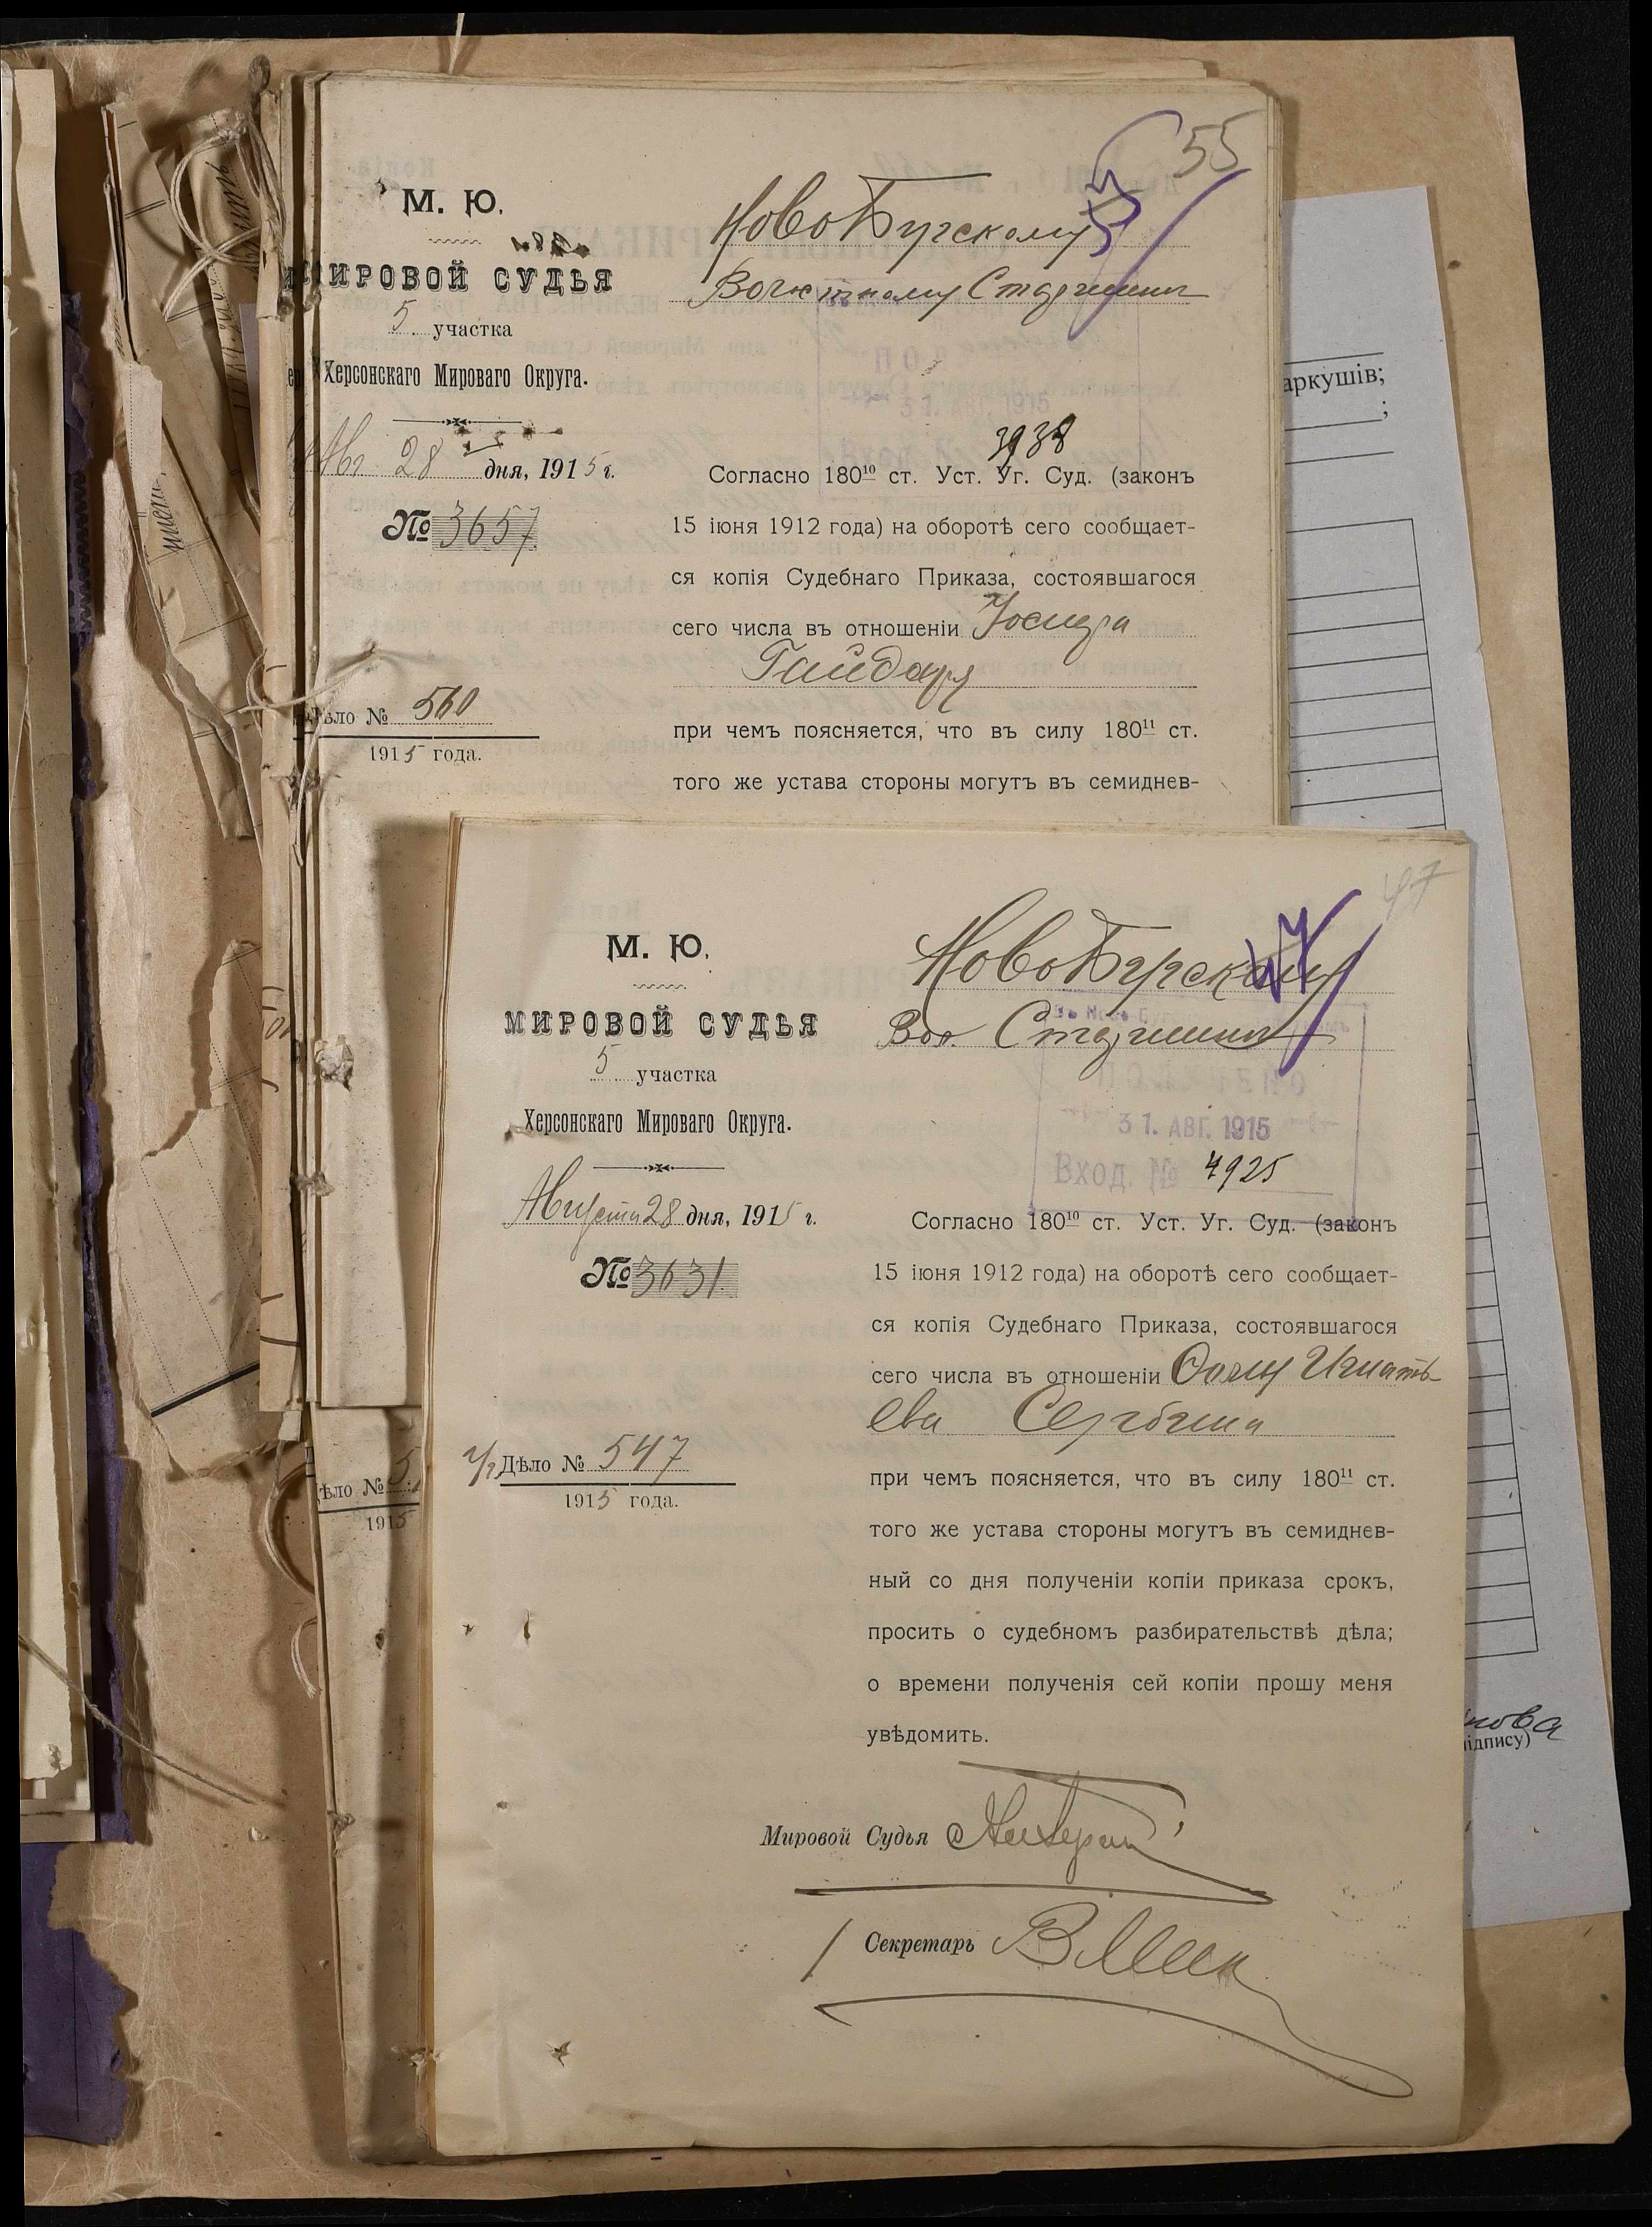 55
М. Ю.
МИРОВОЙ СУДЬЯ
5 участка
Херсонскаго Мироваго Округа.
Авг 28 дня, 1915 г.
№ 3657
Дѣло № 560
1915 года.
НовоБугскому
Волостному Старшинѣ
31. АВГ. 1915
3938
Согласно 180¹⁰ ст. Уст. Уг. Суд. (законъ
15 іюня 1912 года) на оборотѣ сего сообщает-
ся копія Судебнаго Приказа, состоявшагося
сего числа въ отношеніи Іосифа
Гайдаря
при чемъ поясняется, что въ силу 180¹¹ ст.
того же устава стороны могутъ въ семиднев-
47
М. Ю.
МИРОВОЙ СУДЬЯ
5 участка
Херсонскаго Мироваго Округа.
Августа 28 дня, 1915 г.
№ 3631.
Дѣло № 547
1915 года.
НовоБугскому
Вол. Старшинѣ
31. АВГ. 1915
Вход. № 4925
Согласно 180¹⁰ ст. Уст. Уг. Суд. (законъ
15 іюня 1912 года) на оборотѣ сего сообщает-
ся копія Судебнаго Приказа, состоявшагося
сего числа въ отношеніи Игнать
ева Сербина
при чемъ поясняется, что въ силу 180¹¹ ст.
того же устава стороны могутъ въ семиднев-
ный со дня полученіи копіи приказа срокъ,
просить о судебномъ разбирательствѣ дѣла;
о времени полученія сей копіи прошу меня
увѣдомить.
Мировой Судья
Секретарь
ѣло № 5
1915
аркушів;
;
нова
ідпису)